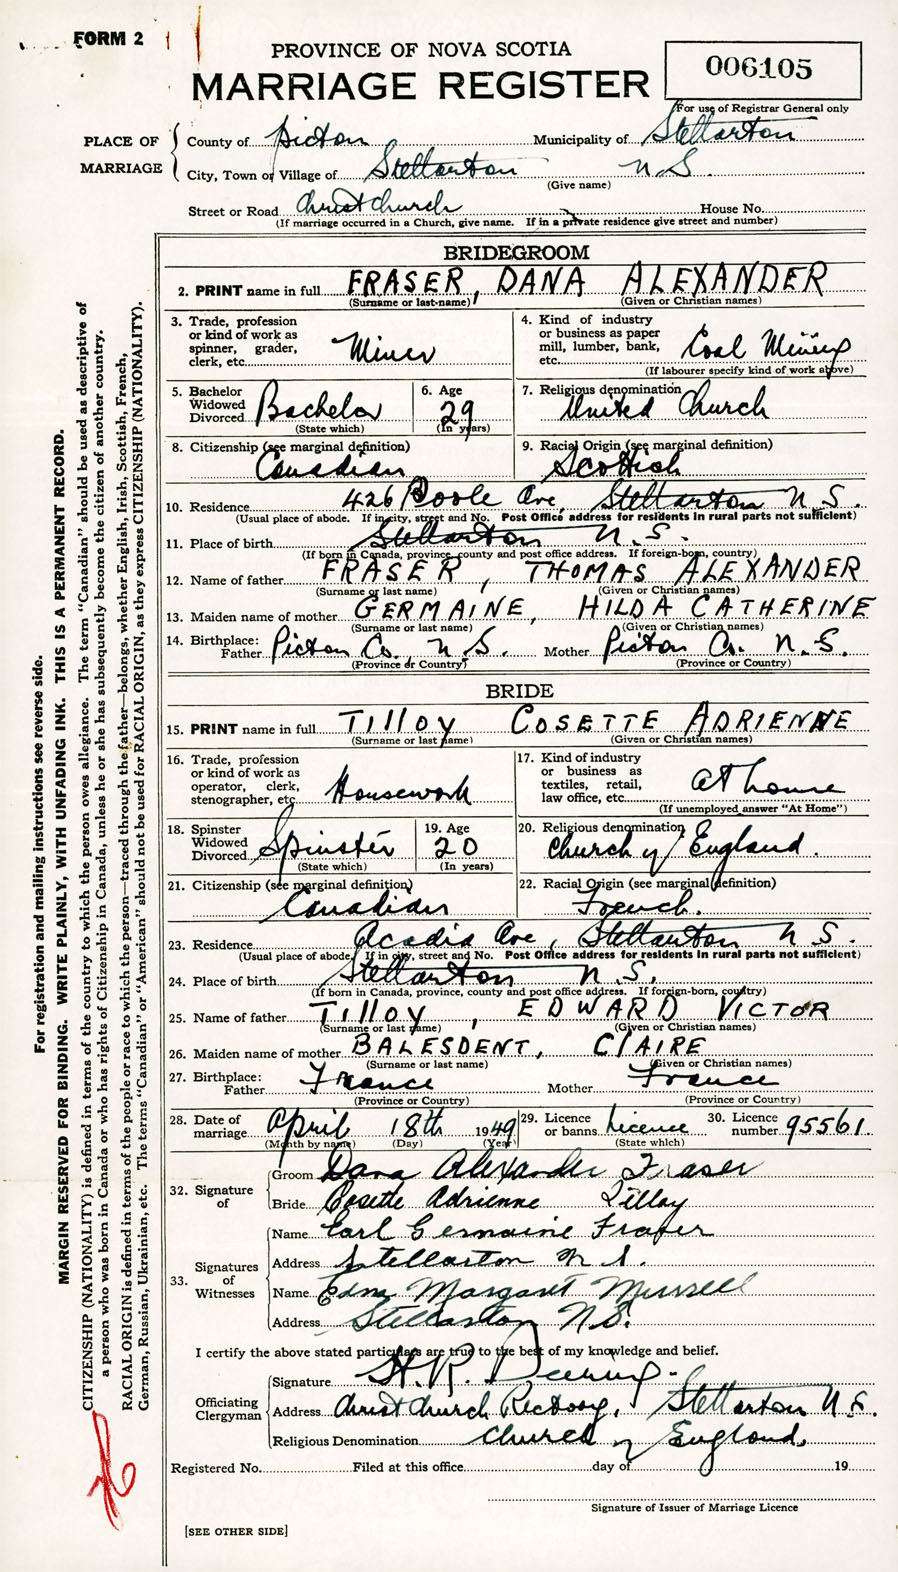 FORM 2
PROVINCE OF NOVA SCOTIA
MARRIAGE REGISTER
006105
(For use of Registrar General only
PLACE OF MARRIAGE
County of Picton Municipality of Stellarton
City, Town or Village of Stellarton N.S.
(Give name)
Street or Road Christ Church House No.
(If marriage occurred in a Church, give name. If in a private residence give street and number)
BRIDEGROOM
2. PRINT name in full FRASER, DANA ALEXANDER
(Surname or last name) (Given or Christian names)
3. Trade, profession or kind of work as spinner, grader, clerk, etc. Miner
4. Kind of industry or business as paper mill, lumber, bank, etc. Coal Mining
(If labourer specify kind of work above)
5. Bachelor Widowed Divorced Bachelor
(State which)
6. Age 29
(In years)
7. Religious denomination United Church
8. Citizenship (see marginal definition) Canadian
9. Racial Origin (see marginal definition) Scottish
10. Residence 426 Poole Ave, Stellarton N.S.
(Usual place of abode. If in city, street and No. Post Office address for residents in rural parts not sufficient)
11. Place of birth Stellarton N.S.
(If born in Canada, province, county and post office address. If foreign-born, country)
12. Name of father FRASER, THOMAS ALEXANDER
(Surname or last name) (Given or Christian names)
13. Maiden name of mother GERMAINE, HILDA CATHERINE
(Surname or last name) (Given or Christian names)
14. Birthplace: Father Picton Co., N.S. Mother Picton Co. N.S.
(Province or Country) (Province or Country)
BRIDE
15. PRINT name in full TILLOY COSETTE ADRIENNE
(Surname or last name) (Given or Christian names)
16. Trade, profession or kind of work as operator, clerk, stenographer, etc. Housework
17. Kind of industry or business as textiles, retail, law office, etc. at home
(If unemployed answer "At Home")
18. Spinster Widowed Divorced Spinster
(State which)
19. Age 20
(In years)
20. Religious denomination Church of England.
21. Citizenship (see marginal definition) Canadian
22. Racial Origin (see marginal definition) French.
23. Residence Acadia Ave, Stellarton N.S.
(Usual place of abode. If in city, street and No. Post Office address for residents in rural parts not sufficient)
24. Place of birth Stellarton N.S.
(If born in Canada, province, county and post office address. If foreign-born, country)
25. Name of father TILLOY, EDWARD VICTOR
(Surname or last name) (Given or Christian names)
26. Maiden name of mother BALESDENT, CLAIRE
(Surname or last name) (Given or Christian names)
27. Birthplace: Father France Mother France
(Province or Country) (Province or Country)
28. Date of marriage April 18th 1949
(Month by name) (Day) (Year)
29. Licence or banns. Licence
(State which)
30. Licence number 95561
32. Signature of
Groom Dana Alexander Fraser
Bride Cosette Adrienne Tilloy
33. Signatures of Witnesses
Name Earl Germaine Fraser
Address Stellarton N.S.
Name Edna Margaret Murrell
Address Stellarton N.S.
I certify the above stated particulars are true to the best of my knowledge and belief.
Officiating Clergyman
Signature H.R. Deering
Address Christ Church Rectory, Stellarton N.S.
Religious Denomination Church of England.
Registered No. Filed at this office day of 19
Signature of Issuer of Marriage Licence
[SEE OTHER SIDE]
For registration and mailing instructions see reverse side.
MARGIN RESERVED FOR BINDING. WRITE PLAINLY, WITH UNFADING INK. THIS IS A PERMANENT RECORD.
CITIZENSHIP (NATIONALITY) is defined in terms of the country to which the person owes allegiance. The term "Canadian" should be used as descriptive of
a person who was born in Canada or who has rights of Citizenship in Canada, unless he or she has subsequently become the citizen of another country.
RACIAL ORIGIN is defined in terms of the people or race to which the person—traced through the father—belongs, whether English, Irish, Scottish, French,
German, Russian, Ukrainian, etc. The terms "Canadian" or "American" should not be used for RACIAL ORIGIN, as they express CITIZENSHIP (NATIONALITY).